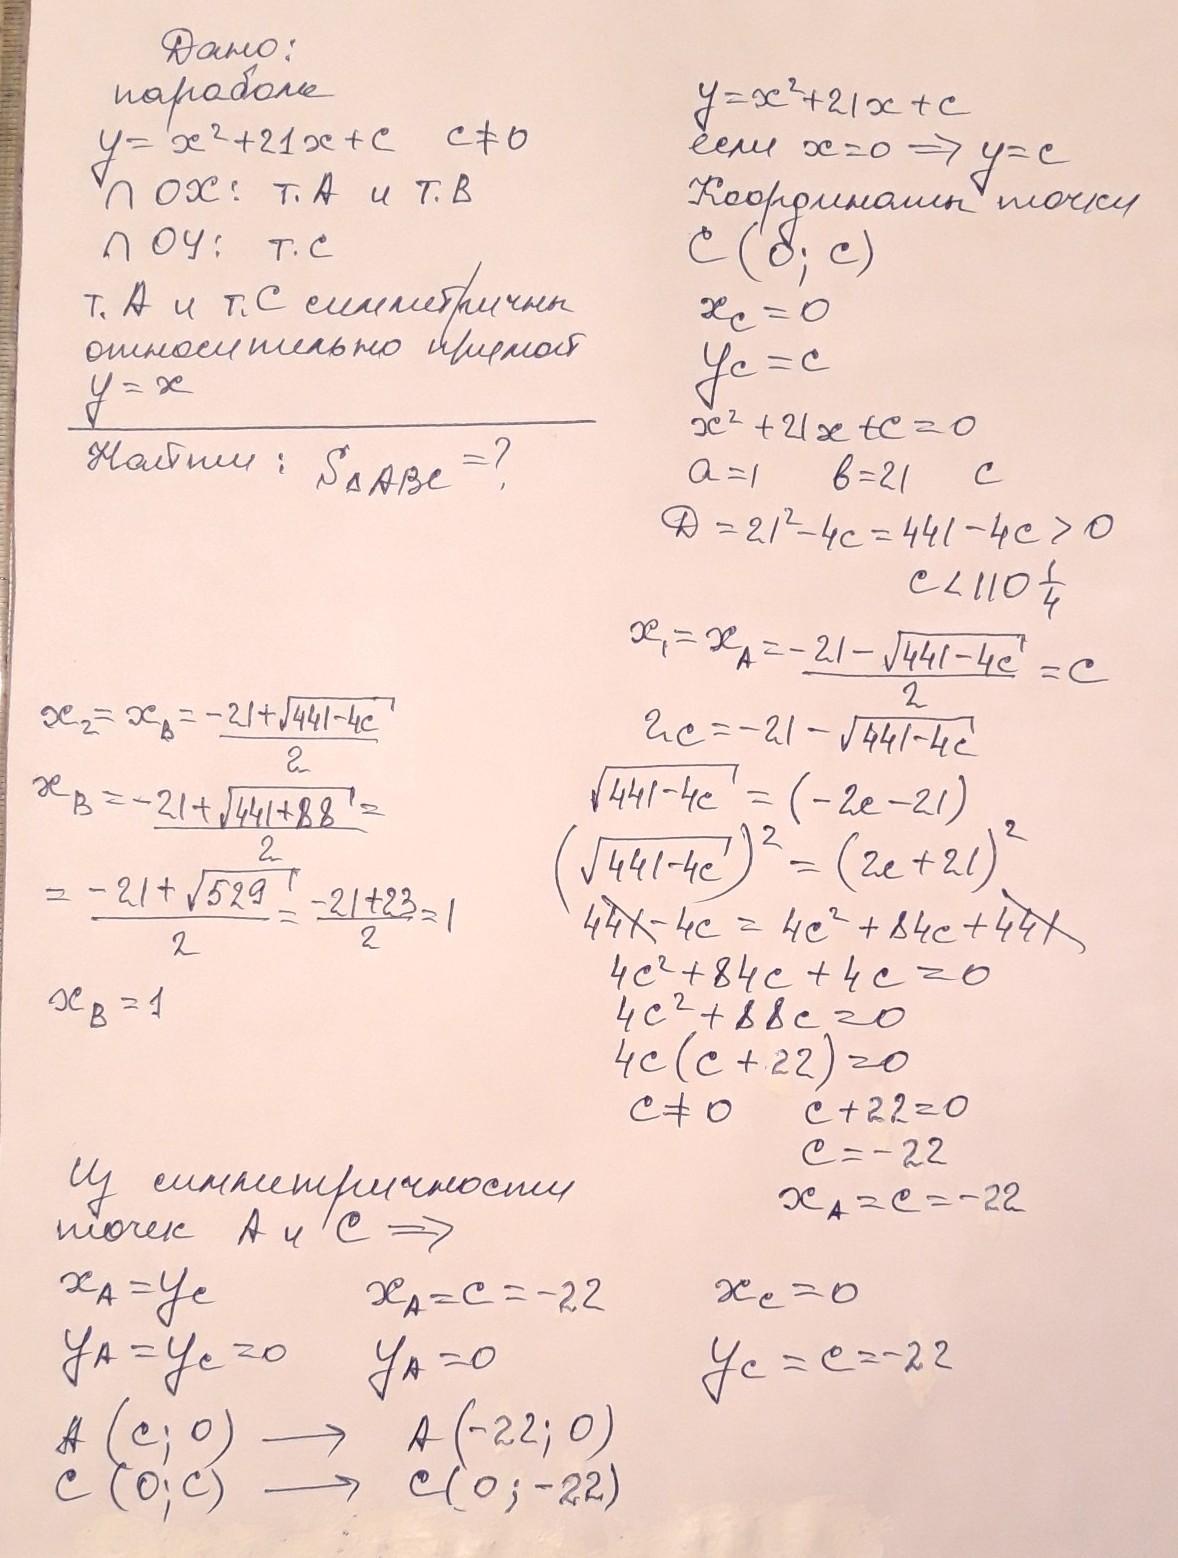 Дано:
парабола
y = x² + 21x + c   c ≠ 0
∩ OX: т. A и т. B
∩ OY: т. C
т. A и т. C симметричны
относительно прямой
y = x
Найти: S△ABC = ?
y = x² + 21x + c
если x = 0 ⇒ y = c
Координаты точки
C (0; c)
x_C = 0
y_C = c
x² + 21x + c = 0
a = 1   b = 21   c
D = 21² - 4c = 441 - 4c > 0
c < 110 1/4
x₁ = x_A = (-21 - √(441-4c))/2 = c
2c = -21 - √(441-4c)
√(441-4c) = (-2c-21)
(√(441-4c))² = (2c+21)²
441 - 4c = 4c² + 84c + 441
4c² + 84c + 4c = 0
4c² + 88c = 0
4c(c + 22) = 0
c ≠ 0   c + 22 = 0
c = -22
x_A = c = -22
x₂ = x_B = (-21+√(441-4c))/2
x_B = (-21+√(441+88))/2 =
= (-21+√529)/2 = (-21+23)/2 = 1
x_B = 1
Из симметричности
точек A и C ⇒
x_A = y_C   x_A = c = -22   x_C = 0
y_A = y_C = 0   y_A = 0   y_C = c = -22
A (c; 0) → A (-22; 0)
C (0; c) → C (0; -22)